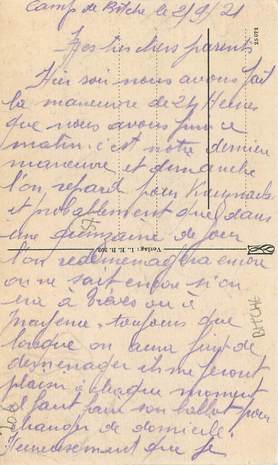 Camp de Bitche le 2/9/21
Mes très chers parents
Hier soir nous avons fait
la manœuvre de 24 Heures
que nous avons fini ce
matin. c'est notre dernière
manœuvre et dimanche
l'on repart pour
et probablement que dans
une quinzaine de jour
l'on redéménagera encore
on ne sait encore si on
ira à ou à
Mayence, toujours que
lorsque on aura fini de
déménager ils me feront
plaisir à chaque moment
il faut faire son ballot pour
changer de domicile.
Heureusement que je
BITCHE
Verlag: L. K. B. 303